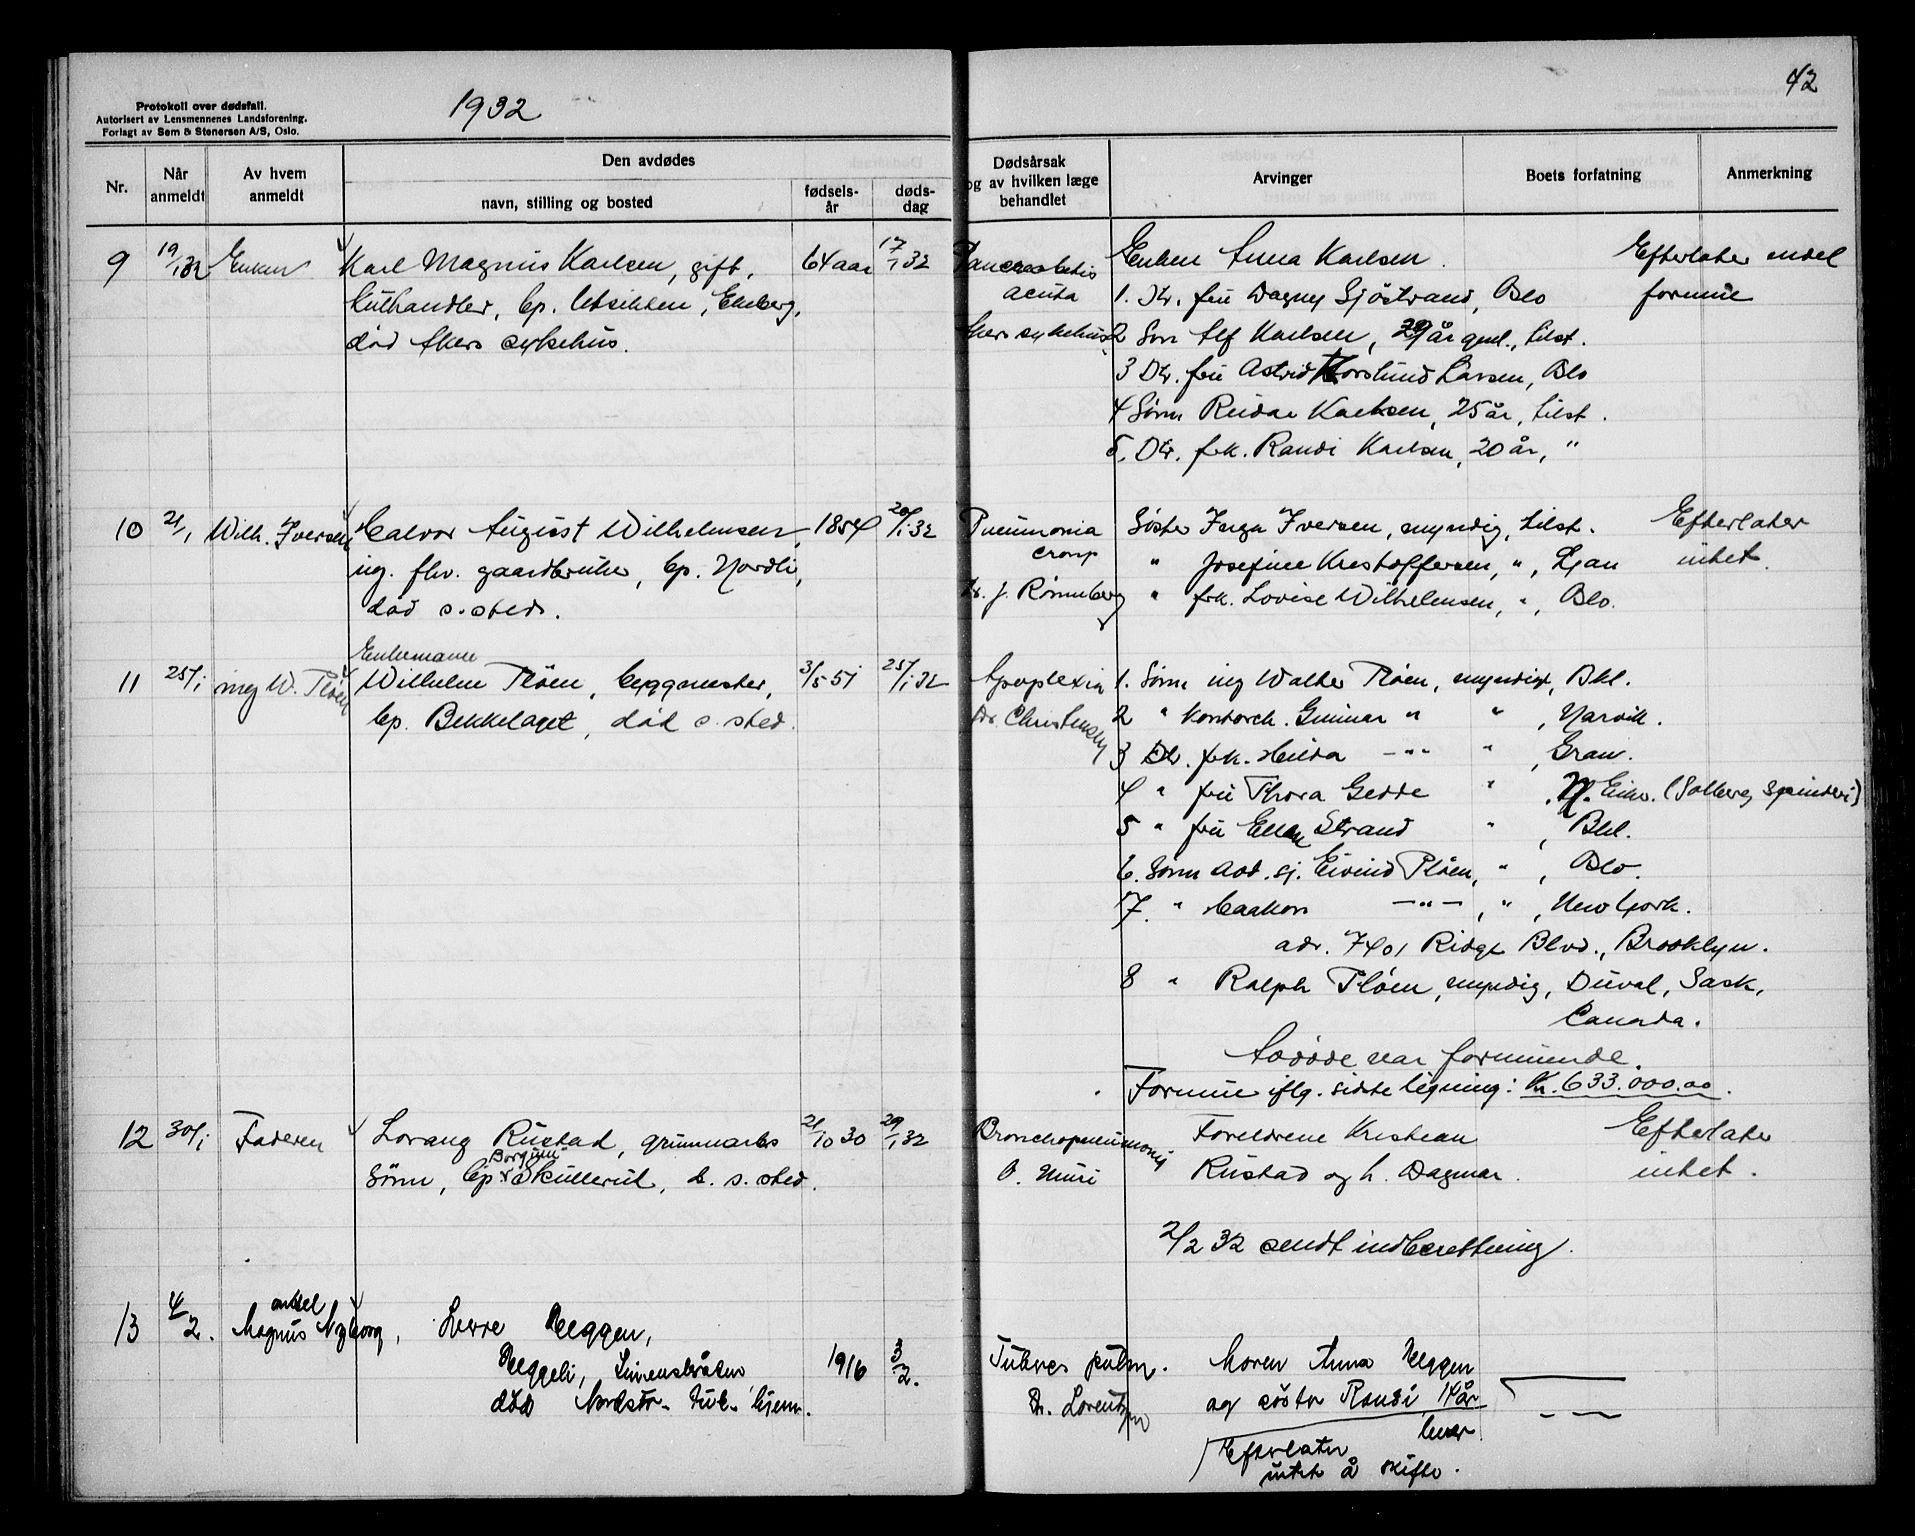 42
Protokoll over dødsfall.
Autorisert av Lensmennenes Landsforening.
Forlagt av Sem & Stenersen A/S, Oslo.
1932
Nr.
Når anmeldt
Av hvem anmeldt
Den avdødes
navn, stilling og bosted
fødsels-år
døds-dag
Dødsårsak og av hvilken læge behandlet
Arvinger
Boets forfatning
Anmerkning
9 19/1 32 Enken Karl Magnus Karlsen, gift, 64 aar 17/1 32
kulhandler, bp. Utsikten, Ekeberg,
død Akers sykehus.
acuta
Akers sykehus
Enken Anna Karlsen.
1. Dtr. fru Dagny Sjöstrand, Oslo
2 Søn Alf Karlsen, 29 år gml., tilst.
3 Dtr. fru Astrid Forslund Larsen, Oslo
4 Sønn Reidar Karlsen, 25 år, tilst.
5. Dtr. frk. Randi Karlsen, 20 år, "
Efterlater endel
formue
10 21/1 Wilh. Iversen Halvor August Wilhelmsen, 1854 20/1 32
ug. fhv. gaardbruker, bp. Nordli,
død s. sted.
Pneumonia
croup
Dr. J. Rønneberg
Søster Inga Iversen, myndig, tilst.
" Josefine Kristoffersen, ", Ljan
" frk. Lovise Wilhelmsen, ", Oslo.
Efterlater
intet.
11 25/1 ing W. Pløen Enkemann
Wilhelm Pløen, byggmester, 3/5 51 25/1 32
bp. Bekkelaget, død s. sted.
Apoplexia
Dr. Christensen
1. Sønn ing Walter Pløen, myndig, Bkl.
2 " kontorch. Gunnar " " , Narvik.
3 Dtr. frk. Hilda —"— " , Gran.
4 " fru Thora Gedde " , N. Eiker. (Solberg Spinderi)
5 " fru Ellen Strand " , Bkl.
6. Sønn adv. sj. Eivind Pløen, " , Oslo.
7. " Haakon —"—, " , New York.
adr. 7401 Ridge Blvd., Brooklyn.
8 " Ralph Pløen, myndig, Duval, Sask,
Canada.
Avdøde var formuende.
Formue iflg. sidste ligning: Kr. 633.000.00.
12 30/1 Faderen Lorang Rustad, grunnarb. 21/10 30 29/1 32
sønn, bp. Skullerud, d. s. sted.
Bronchopneumoni
O. Muri
Foreldrene Kristian
Rustad og h. Dagmar.
Efterlater
intet.
2/2 32 sendt indberetning.
13 4/2. onkel
Magnus Nyborg, Sverre Heggen,
Heggeli, Simensbråten 1916 3/2.
død Nordstr. tub. hjem.
Tubercs pulm.
Dr. Lorentzen
Moren Anna Heggen
og søster Randi 14 år
lever
Efterlater
intet å skifte.